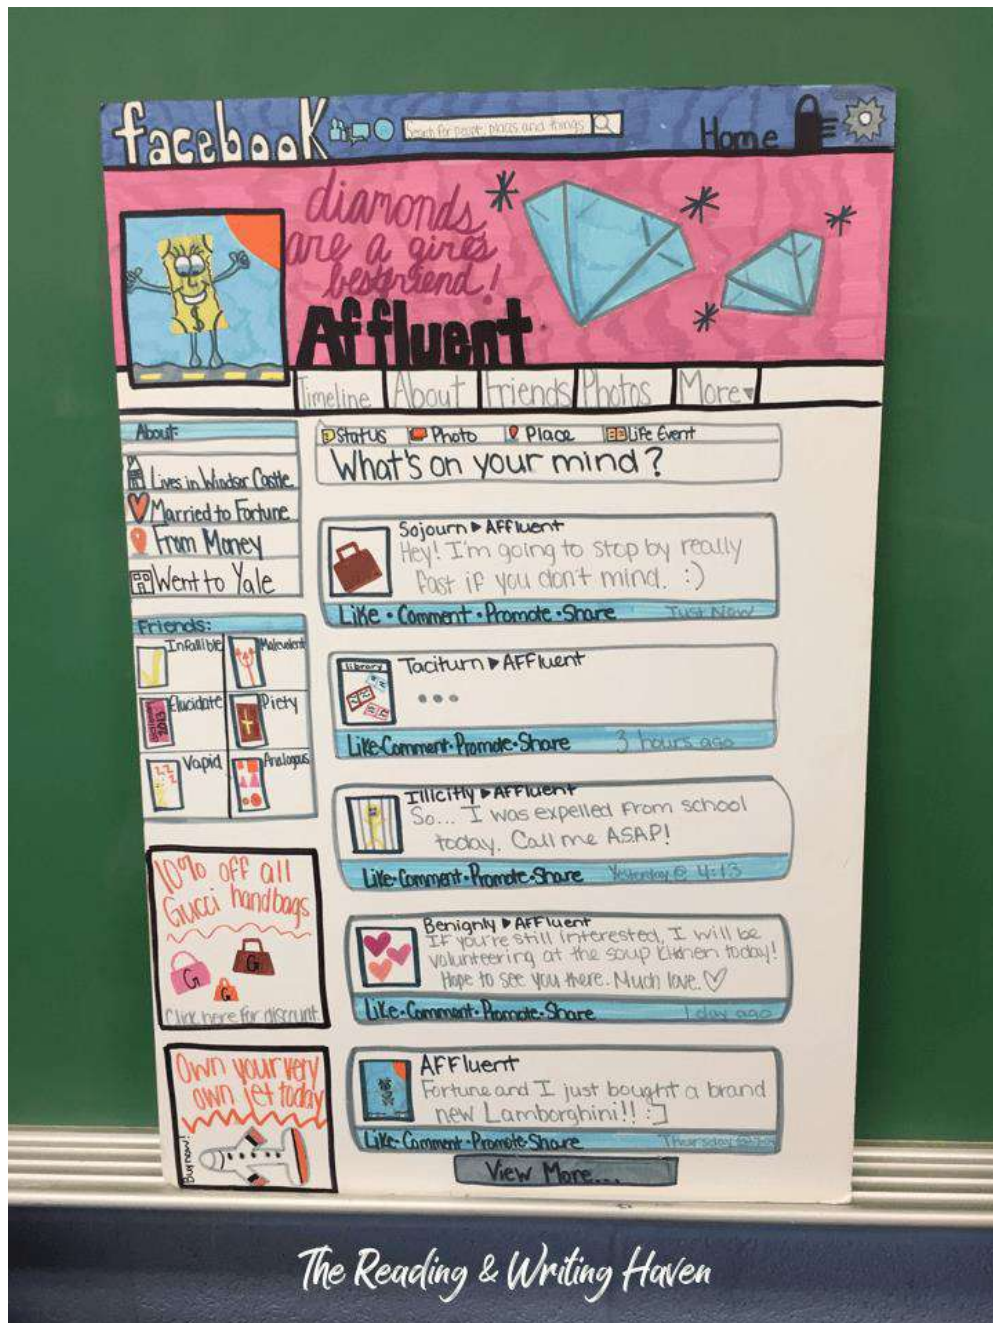 facebook
Search for people, places and things
Home
diamonds
are a girl's
bestfriend!
Affluent
Timeline
About
Friends
Photos
More
About:
Lives in Windsor Castle
Married to Fortune
From Money
Went to Yale
Friends:
Infallible
Malevolent
Elucidate
Piety
Vapid
Analogous
10% off all
Gucci handbags
G
G
G
Click here for discount
Own your very
own jet today
Buy now!
Status
Photo
Place
Life Event
What's on your mind?
Sojourn ▶ AFFluent
Hey! I'm going to stop by really
fast if you don't mind. :)
Like • Comment • Promote • Share
Just Now
library
Taciturn ▶ AFFluent
...
Like•Comment•Promote•Share
3 hours ago
Illicitly ▶ AFFluent
So... I was expelled from school
today. Call me ASAP!
Like•Comment•Promote•Share
Yesterday @ 4:13
Benignly ▶ AFFluent
If you're still interested, I will be
volunteering at the soup kitchen today!
Hope to see you there. Much love. ♡
Like•Comment•Promote•Share
1 day ago
AFFluent
Fortune and I just bought a brand
new Lamborghini!! :]
Like•Comment•Promote•Share
Thursday
View More...
The Reading & Writing Haven